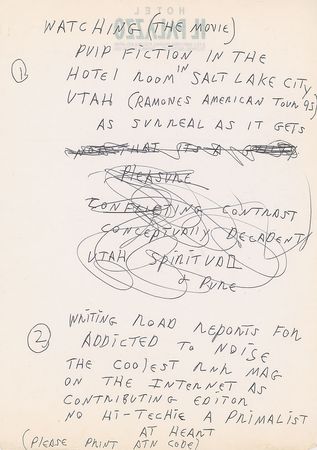 HOTEL
IL PALAZZO
WATCHING (THE MOVIE)
PULP FICTION IN THE
① HOTEL ROOM IN SALT LAKE CITY
UTAH (RAMONES AMERICAN TOUR 95)
AS SURREAL AS IT GETS
THAT ITS A
PLEASURE
CONFLICTING CONTRAST
CONCEPTUALLY DECADENT
UTAH SPIRITUAL
& PURE
② WRITING ROAD REPORTS FOR
ADDICTED TO NOISE
THE COOLEST RNR MAG
ON THE INTERNET AS
CONTRIBUTING EDITOR
NO HI-TECHIE A PRIMALIST
AT HEART
(PLEASE PRINT ATN CODE)